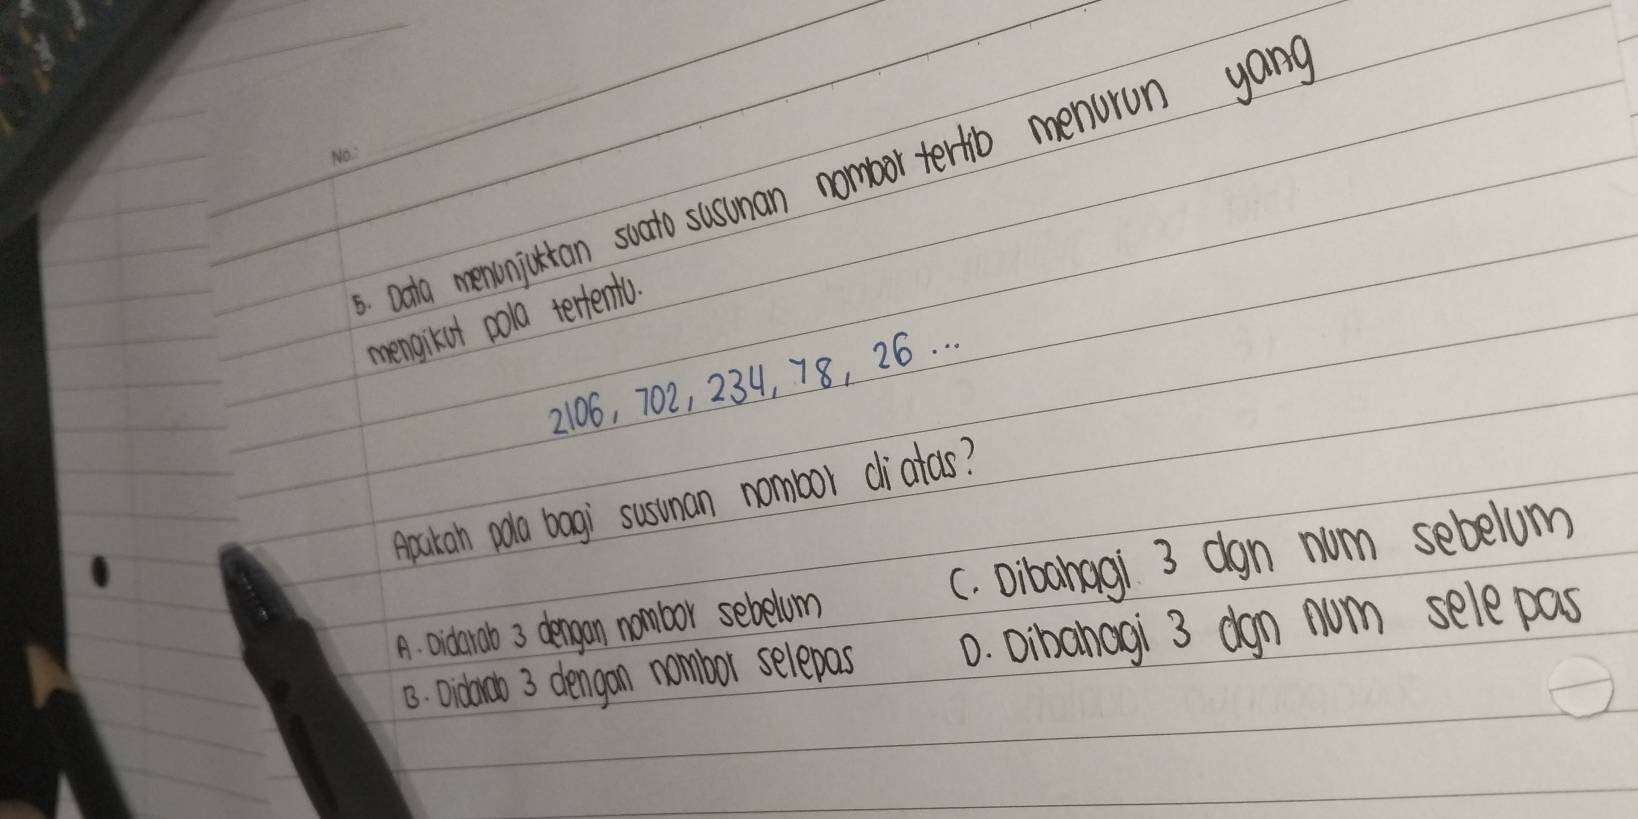 No.:
5. Data menunjukkan suato susunan nombor tertib menurun yang
mengikut pola tertentu.
2106, 702, 234, 78, 26 ...
Apakah pola bagi susunan nombor di atas?
A. Didarab 3 dengan nombor sebelum
B. Didarab 3 dengan nombor selepas
C. Dibahagi 3 dgn num sebelum
D. Dibahagi 3 dgn num selepas